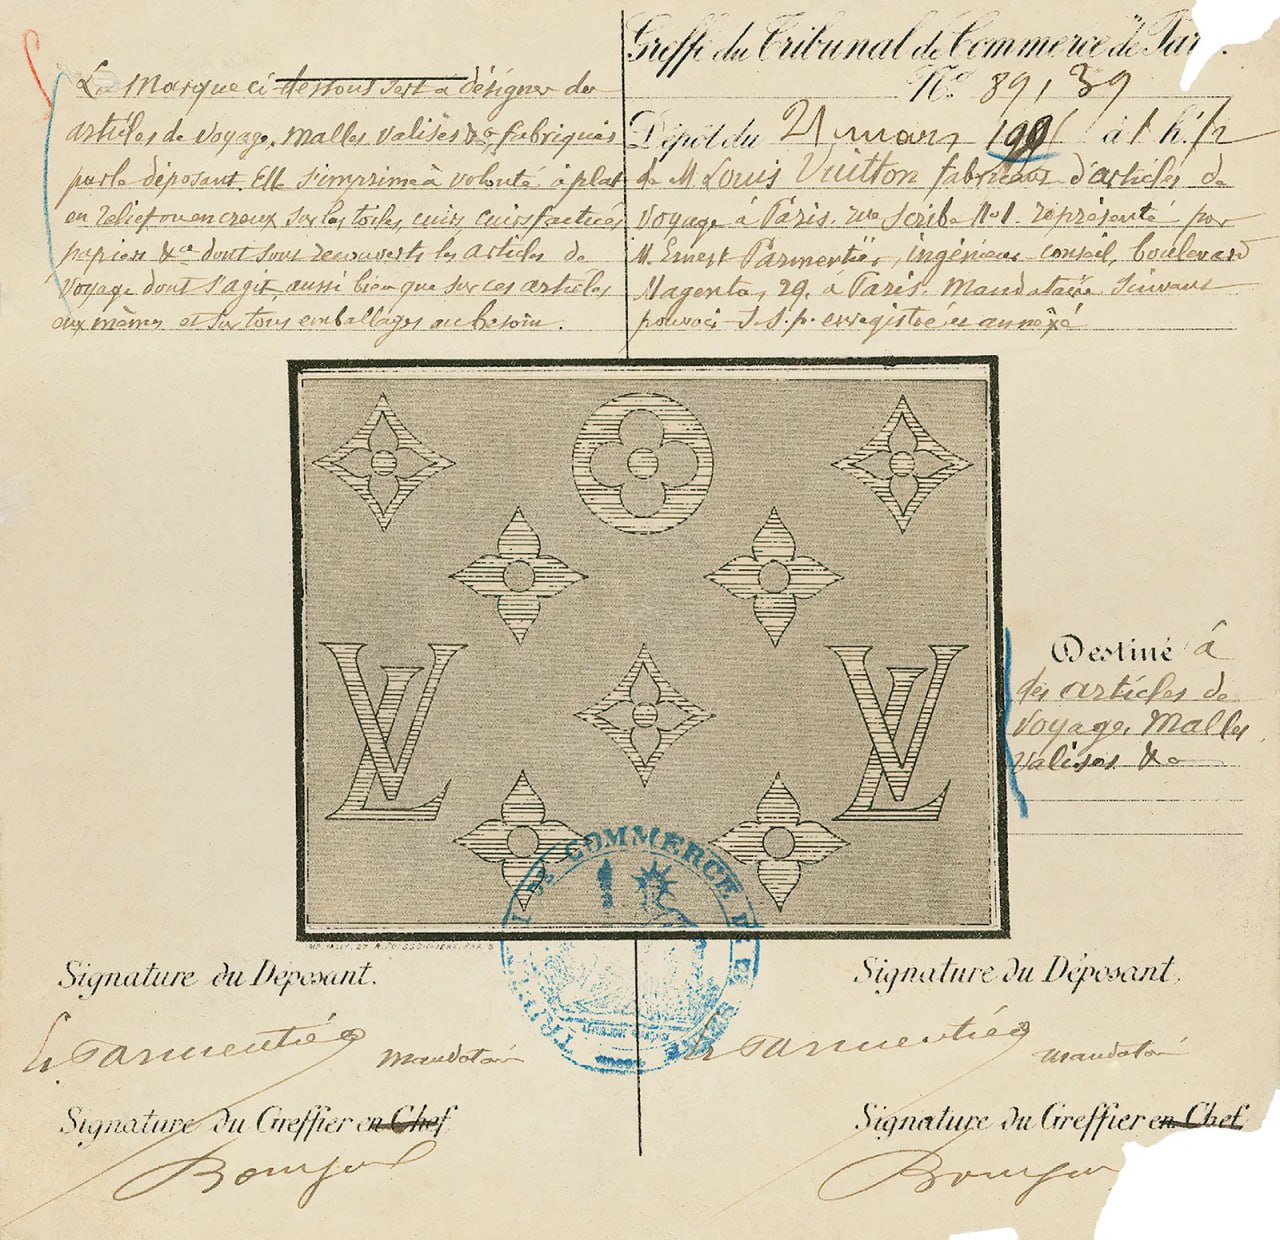 Greffe du Tribunal de Commerce de Par
N° 89,139
Dépôt du 21 mars à 1 h. 1/2
de M Louis Vuitton fabricant d'articles de
voyage à Paris. rue Scribe No 1. représenté par
M. Ernest Parmentier, ingénieur conseil, boulevard
Magenta, 29. à Paris. Mandataire suivant
pouvoir s.s.p. enregistré et annexé
La Marque ci dessous sert à désigner des
articles de voyage, malles valises &a, fabriqués
par le déposant. Elle s'imprime à volonté à plat
en relief ou en creux sur les toiles, cuirs, cuirs factices
papiers &ca dont sont recouverts les articles de
voyage dont s'agit, aussi bien que sur ces articles
eux mêmes et sur tous emballages au besoin.
LV
LV
Destiné à
des articles de
voyage, Malles
valises &a
TRIBUNAL DE COMMERCE DE LA SEINE
Signature du Déposant.
Signature du Déposant,
E. Parmentier mandataire
E. Parmentier mandataire
Signature du Greffier en Chef
Signature du Greffier en Chef